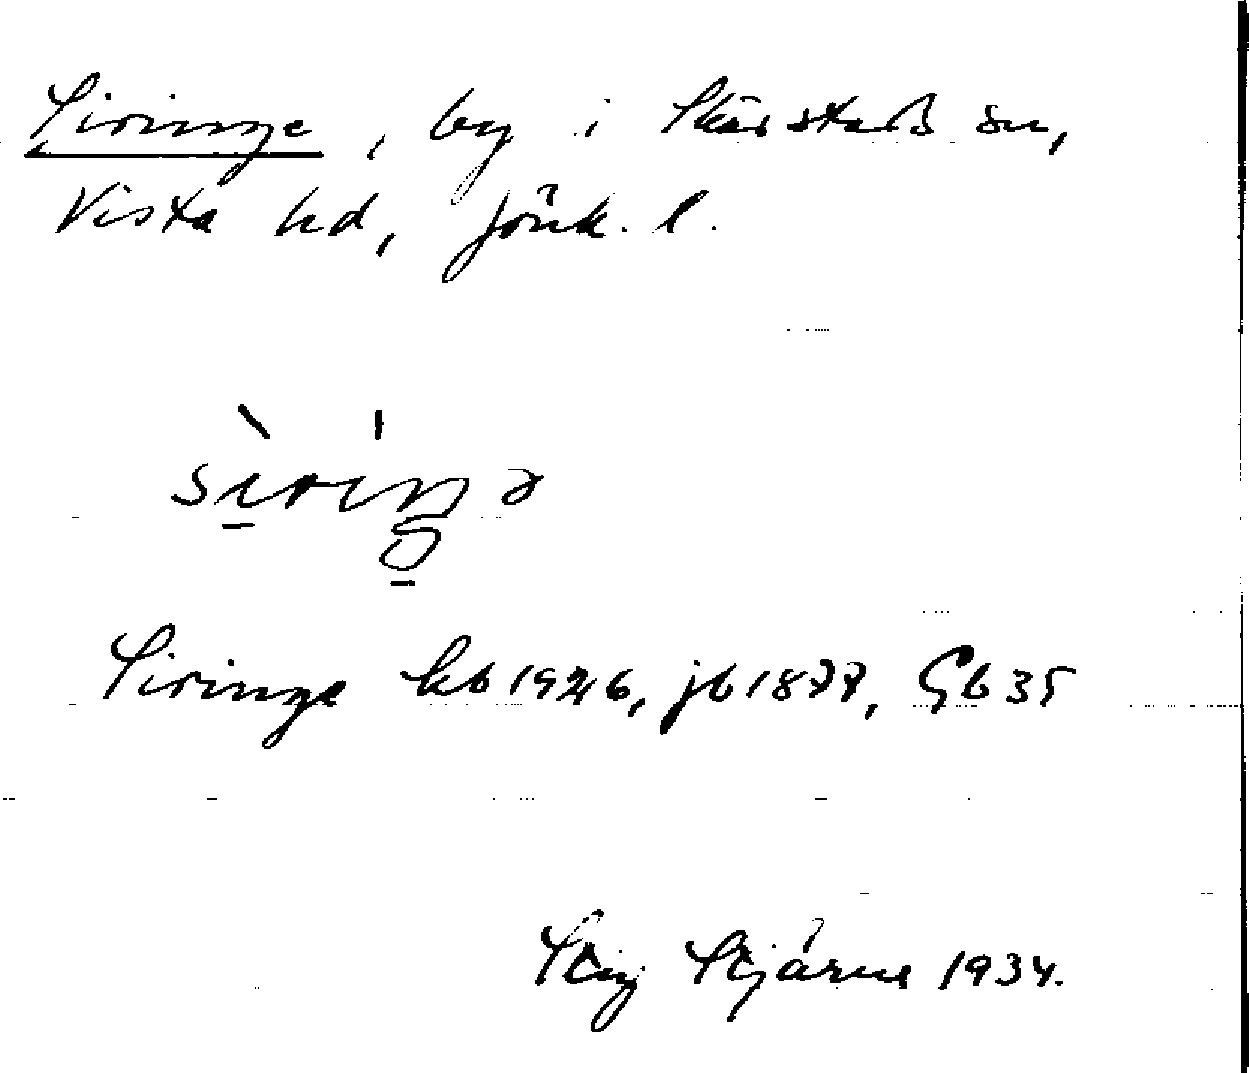 Siringe, by i Skärstads sn,
Vista hd, Jönk. l.
Siringe kb 1926, jb 1877, Gb 35
Stig Stjärne 1934.